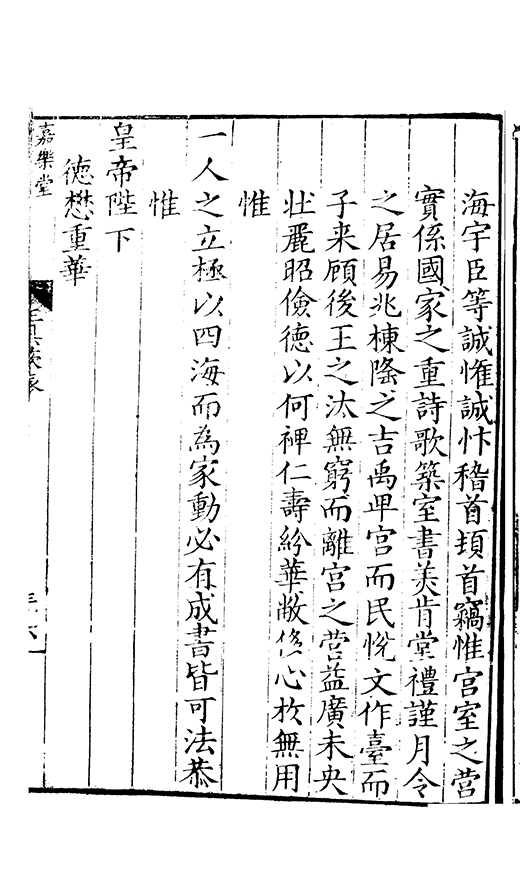 海宇臣等誠惟誠忭稽首頓首竊惟宫室之营
實係國家之重詩歌築室書美肯堂禮謹月令
之居易兆棟隆之吉禹卑宫而民悅文作臺而
子来顧後王之汰無窮而離宫之营益廣未央
壯麗昭儉德以何裨仁壽紛華敝侈心於無用
惟
一人之立極以四海而為家動必有成書皆可法恭
惟
皇帝陛下
德懋重華
嘉樂堂